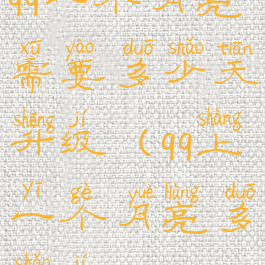 qq一个月亮
xū yào duō shǎo tiān
需要多少天
shēng jí shàng
升级(qq上
yī gè yuè liàng duō
一个月亮多
shǎo jí